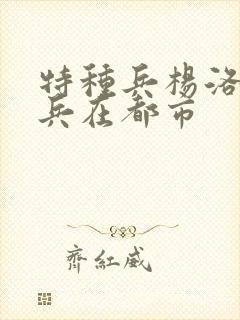 特種兵楊洛
兵在都市
齊紅威